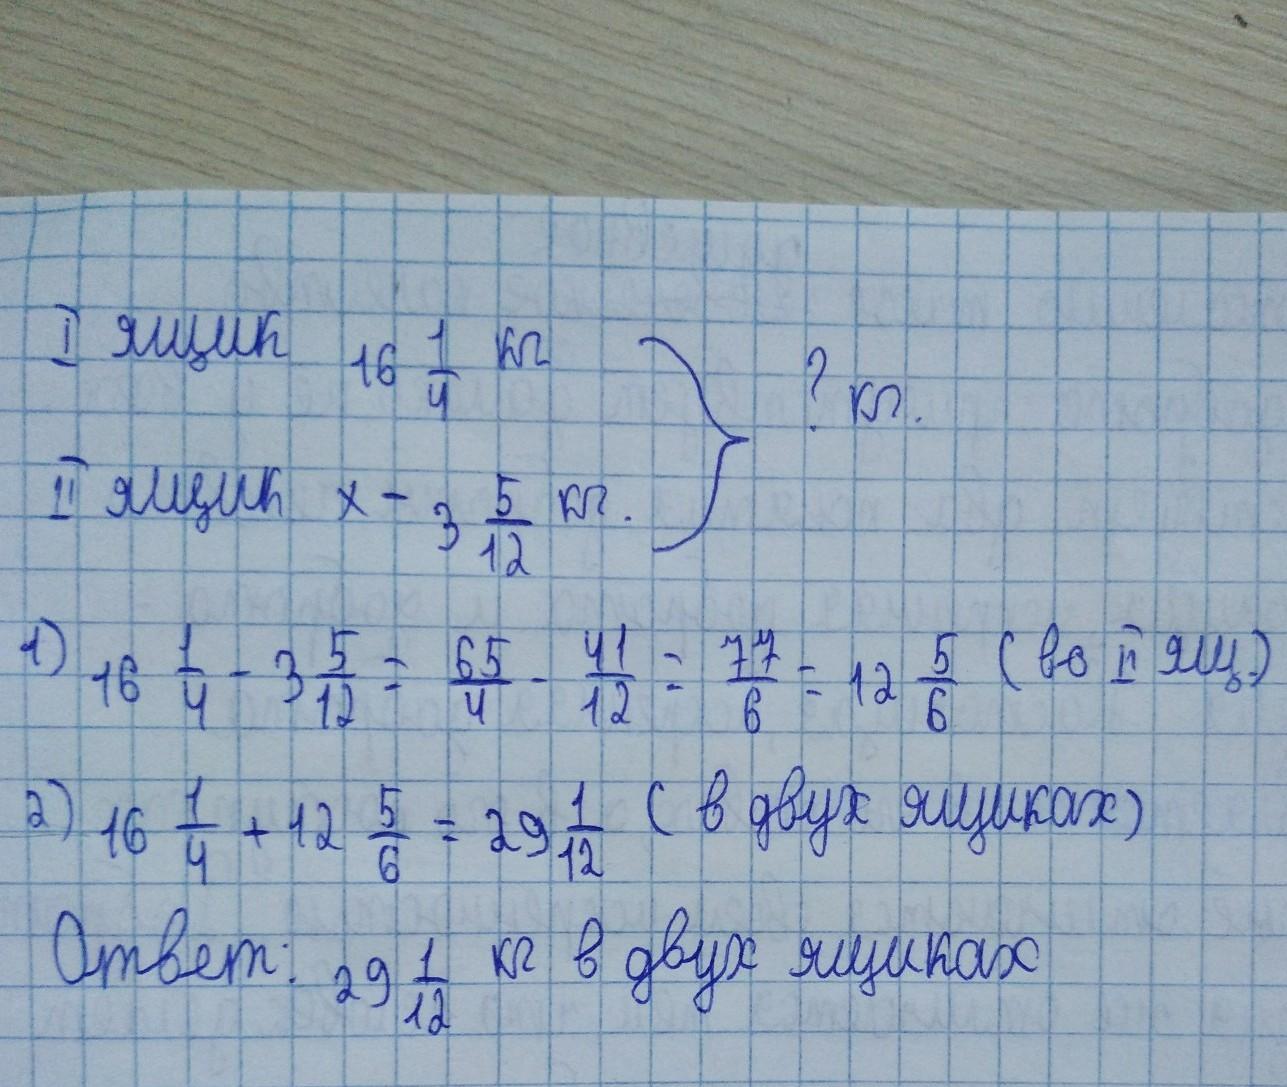 I ящик 16 1/4 кг
? кг.
II ящик x - 3 5/12 кг.
1) 16 1/4 - 3 5/12 = 65/4 - 41/12 = 77/6 = 12 5/6 (во II ящ.)
2) 16 1/4 + 12 5/6 = 29 1/12 (в двух ящиках)
Ответ: 29 1/12 кг в двух ящиках